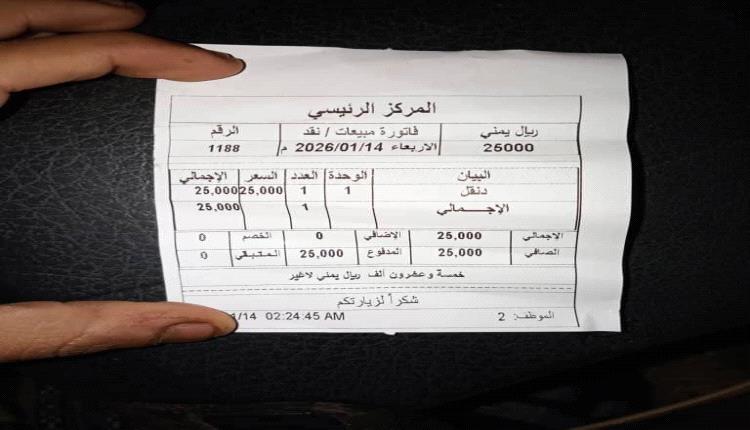 المركز الرئيسي
ريال يمني فاتورة مبيعات / نقد الرقم
25000 الاربعاء 2026/01/14 م 1188
البيان الوحدة العدد السعر الإجمالي
دنقل 1 1 25,000 25,000
الإجـــمالي 1 25,000
الاجمالي 25,000 الإضافي 0 الخصم 0
الصافي 25,000 المدفوع 25,000 المتبقي 0
خمسة وعشرون ألف ريال يمني لاغير
شكراً لزيارتكم
الموظف: 2 1/14 02:24:45 AM